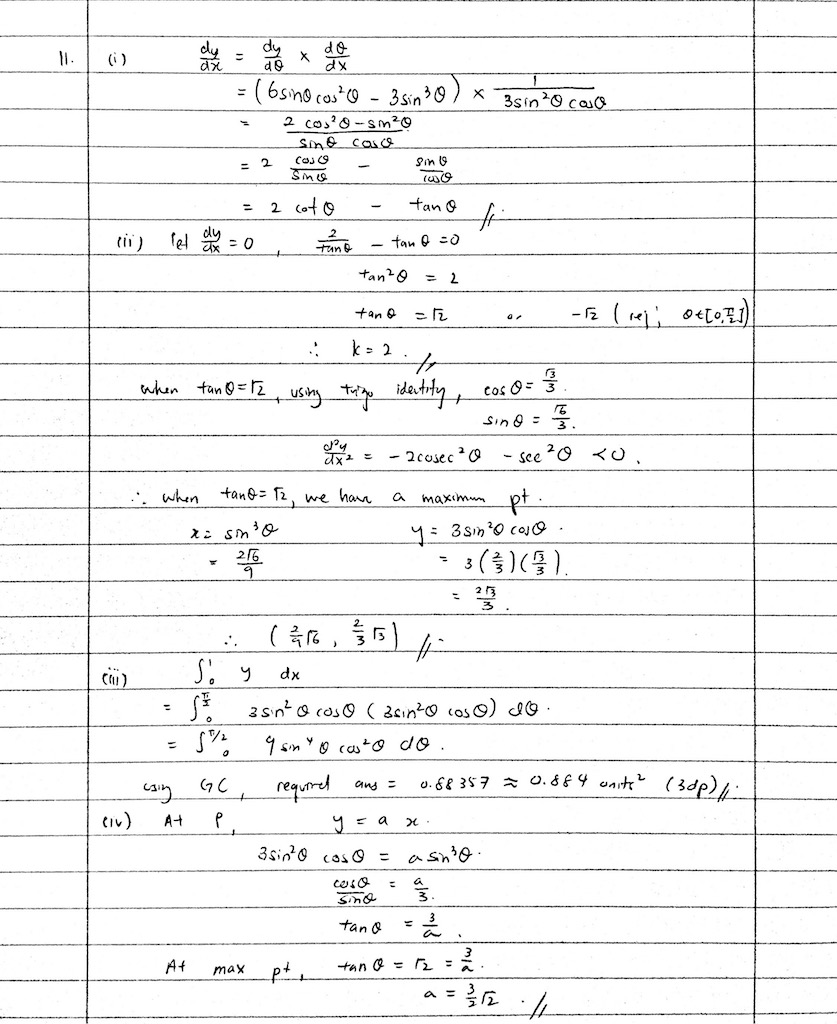 11. (i) dy/dx = dy/dθ × dθ/dx
= (6sinθ cos²θ − 3sin³θ) × 1/(3sin²θ cosθ)
= (2 cos²θ − sin²θ)/(sinθ cosθ)
= 2 cosθ/sinθ − sinθ/cosθ
= 2 cotθ − tanθ //.
(ii) let dy/dx = 0, 2/tanθ − tanθ = 0
tan²θ = 2
tanθ = √2 or −√2 (rej; θ∈[0,π/2])
∴ k = 2. //
when tanθ = √2, using trigo identity, cosθ = √3/3.
sinθ = √6/3.
d²y/dx² = −2cosec²θ − sec²θ < 0.
∴ when tanθ = √2, we have a maximum pt.
x = sin³θ y = 3sin²θ cosθ.
= 2√6/9 = 3(2/3)(√3/3).
= 2√3/3.
∴ (2/9 √6, 2/3 √3) //.
(iii) ∫₀¹ y dx
= ∫₀^(π/2) 3sin²θ cosθ (3sin²θ cosθ) dθ.
= ∫₀^(π/2) 9 sin⁴θ cos²θ dθ.
using GC, required ans = 0.88357 ≈ 0.884 units² (3dp) //.
(iv) At P, y = a x.
3sin²θ cosθ = a sin³θ.
cosθ/sinθ = a/3.
tanθ = 3/a.
At max pt, tanθ = √2 = 3/a.
a = 3/2 √2. //